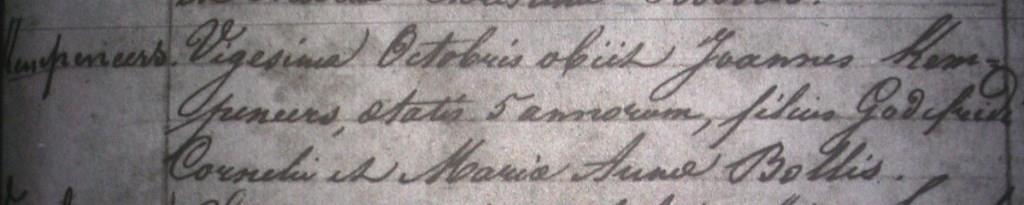 Kempeneers. Vigesima Octobris obiit Joannes Kem=
peneers, ætatis 5 annorum, filius Godefridi
Cornelii et Mariæ Annæ Bollis.